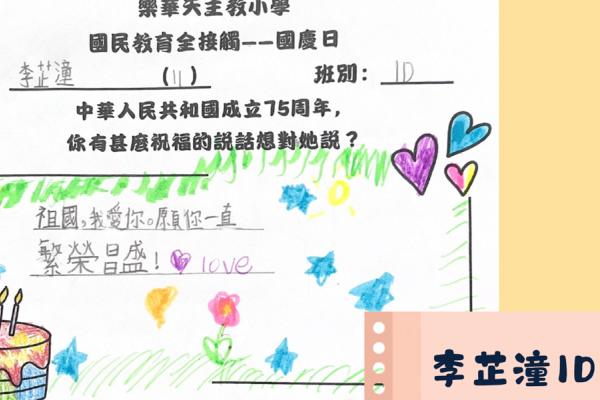 樂華天主教小學
國民教育全接觸——國慶日
李芷潼 (11) 班別： 1D
中華人民共和國成立75周年，
你有甚麼祝福的說話想對她說？
祖國，我愛你。願你一直
繁榮昌盛！ love
李芷潼1D